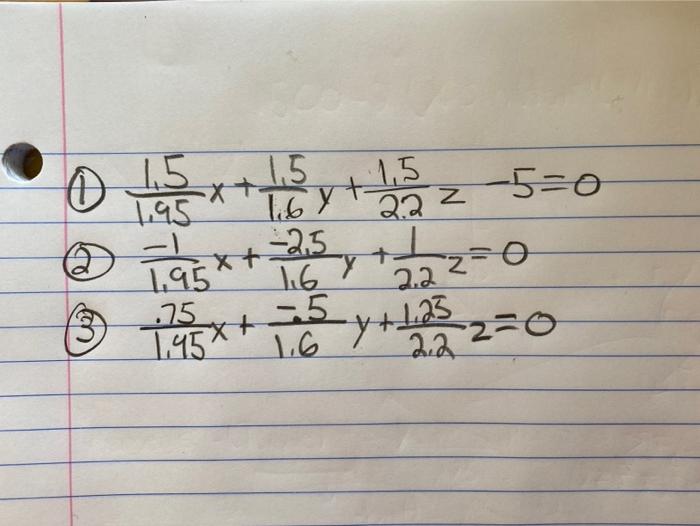 ① 1.5/1.95 x + 1.5/1.6 y + 1.5/2.2 z - 5 = 0
② -1/1.95 x + -2.5/1.6 y + 1/2.2 z = 0
③ .75/1.95 x + -.5/1.6 y + 1.25/2.2 z = 0